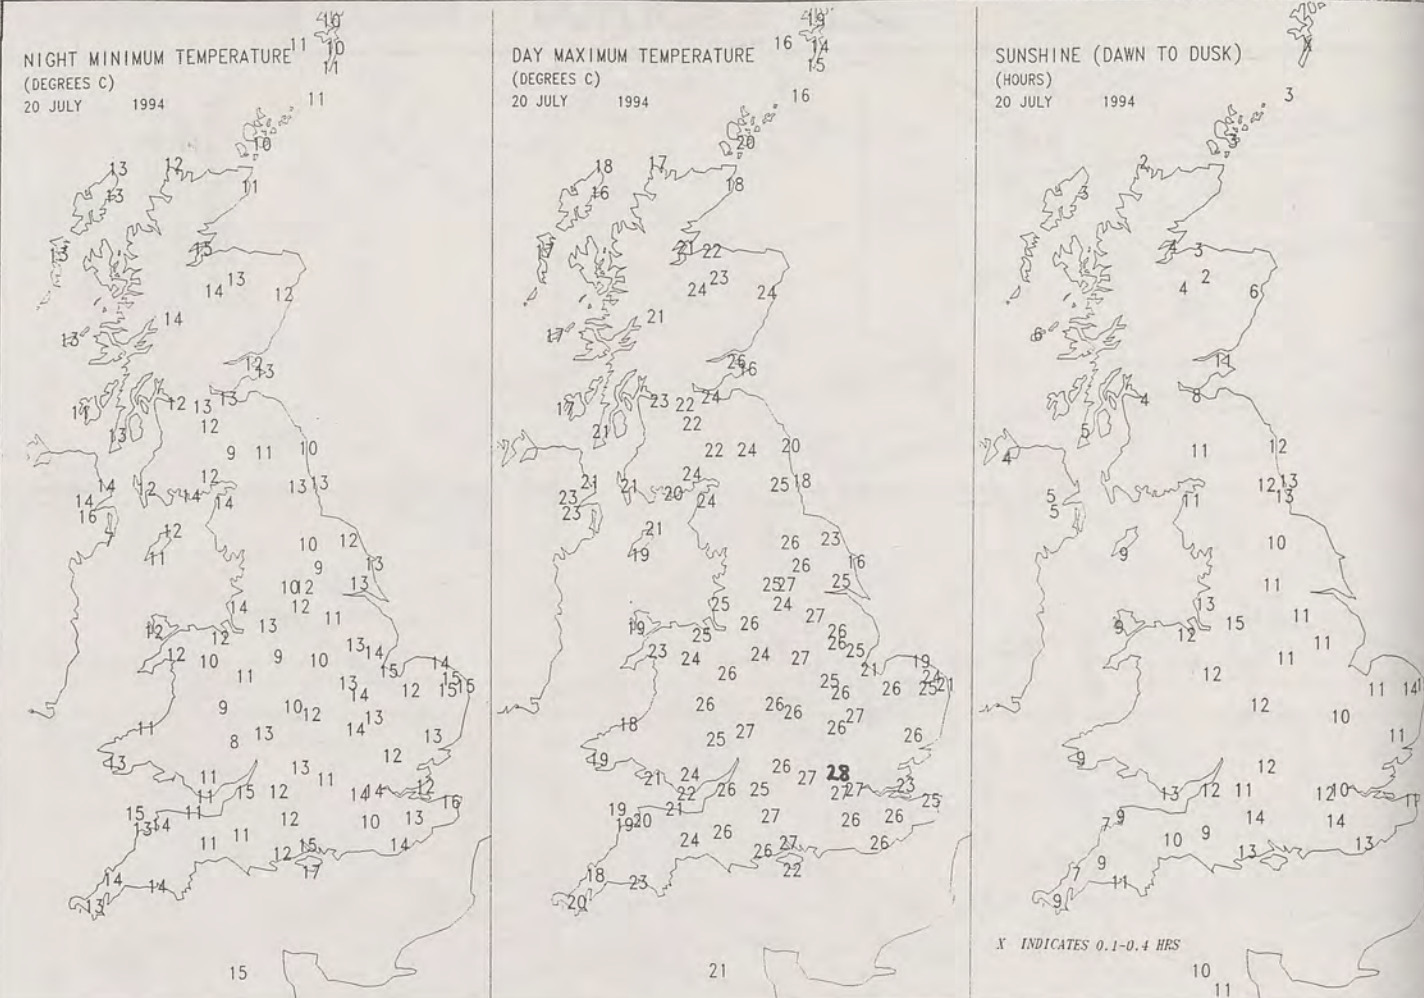 NIGHT MINIMUM TEMPERATURE
(DEGREES C)
20 JULY 1994
10
11 10
11
11
10
13 12
13 11
13 15
13
14 12
14
13
12
13
13
11 12 13
13 12
9 11 10
12
14 12 14 13 13
14 14
16
7 12
11 10 12
9 13
10 12 13
14 12
11
12 12 13
13 14
12 10 9 10 14
11 15 15
13 14 12 15 15
9 10 12
11 13 14 13
8 13
12
13 11 13 11
12
11 15 12 14 14 16
15 11
13 14 12 10 13
11 11 15 14
12
17
14 14
13
15
DAY MAXIMUM TEMPERATURE
(DEGREES C)
20 JULY 1994
19
16 14
15
16
20
18 17
16 18
17 21 22
23
24 24
21
17
26
16
17 23 22 24
21 22
22 24 20
24
21 21 20 25 18
23 24
23
21 23
19 26
26 16
25 27 25
25 24
27
19 26 26
25 26
23 24 24 27 25
26 21 19
24
25 26 26 25 21
26 26 26 27
18 27 26
25 26
19 26
21 24 27 28
22 26 25 27 27 23
25
19 21
19 20 27 26 26
24 26 27 26
26
22
18 23
20
21
SUNSHINE (DAWN TO DUSK)
(HOURS)
20 JULY 1994
X
3
3
2
3
4 3
2
4 6
6
11
4 8
5
4 11 12
5 11 12 13
5 13
9 10
11
13
9 12 15 11
11
12 11
11 14
12 10
11
9 12
13 12 11 12 10
11
9 14 14
7
10 9 13 13
9
7 11
9
X INDICATES 0.1-0.4 HRS
10
11